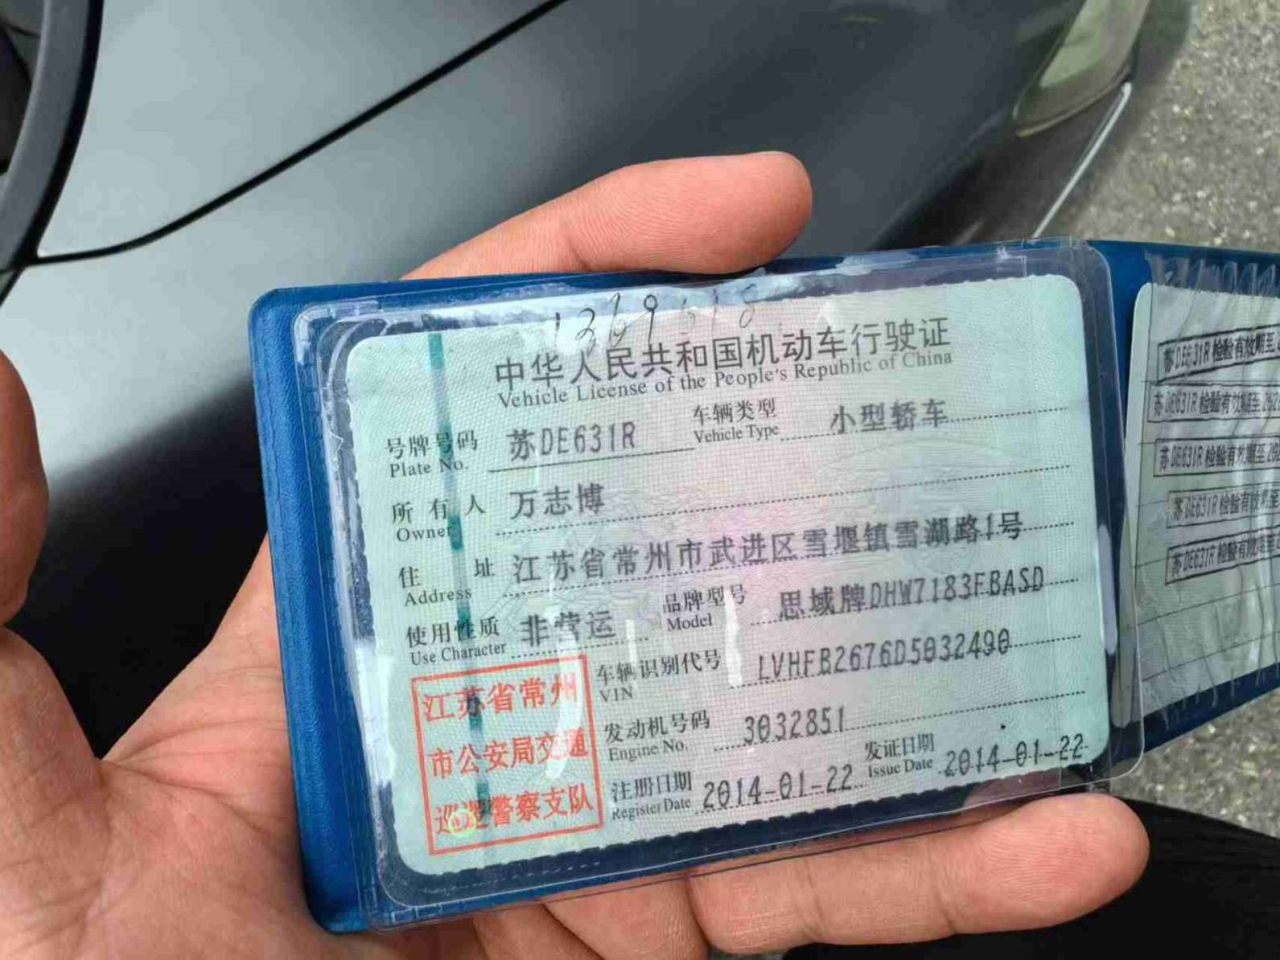 1369618
中华人民共和国机动车行驶证
Vehicle License of the People's Republic of China
号牌号码 苏DE631R 车辆类型 小型轿车
Plate No. Vehicle Type
所有人 万志博
Owner
住址 江苏省常州市武进区雪堰镇雪湖路1号
Address
使用性质 非营运 品牌型号 思域牌DHW7183FBASD
Use Character Model
车辆识别代号 LVHFB2676D5032490
VIN
发动机号码 3032851
Engine No.
注册日期 2014-01-22 发证日期 2014-01-22
Register Date Issue Date
江苏省常州
市公安局交通
巡逻警察支队
苏DE631R 检验有效期至
苏DE631R 检验有效期至
苏DE631R 检验有效期至
苏DE631R 检验有效期至
苏DE631R 检验有效期至